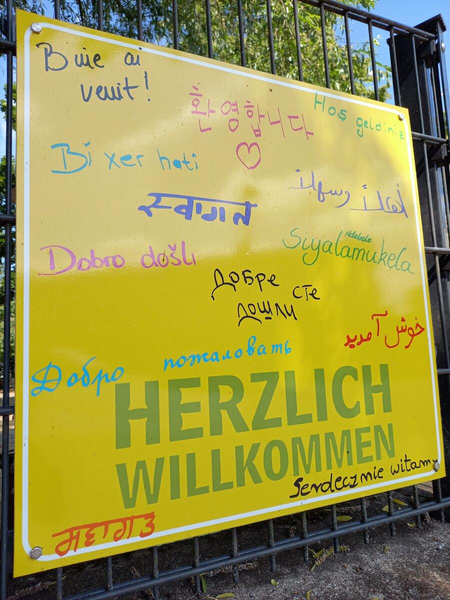 Bine ai
venit!
환영합니다
Hoş geldiniz
Bi xer hati
أهلاً وسهلاً
स्वागत
Ndebele
Siyalamukela
Dobro došli
Добре сте
дошли
خوش آمدید
Добро пожаловать
HERZLICH
WILLKOMMEN
Serdecznie witamy